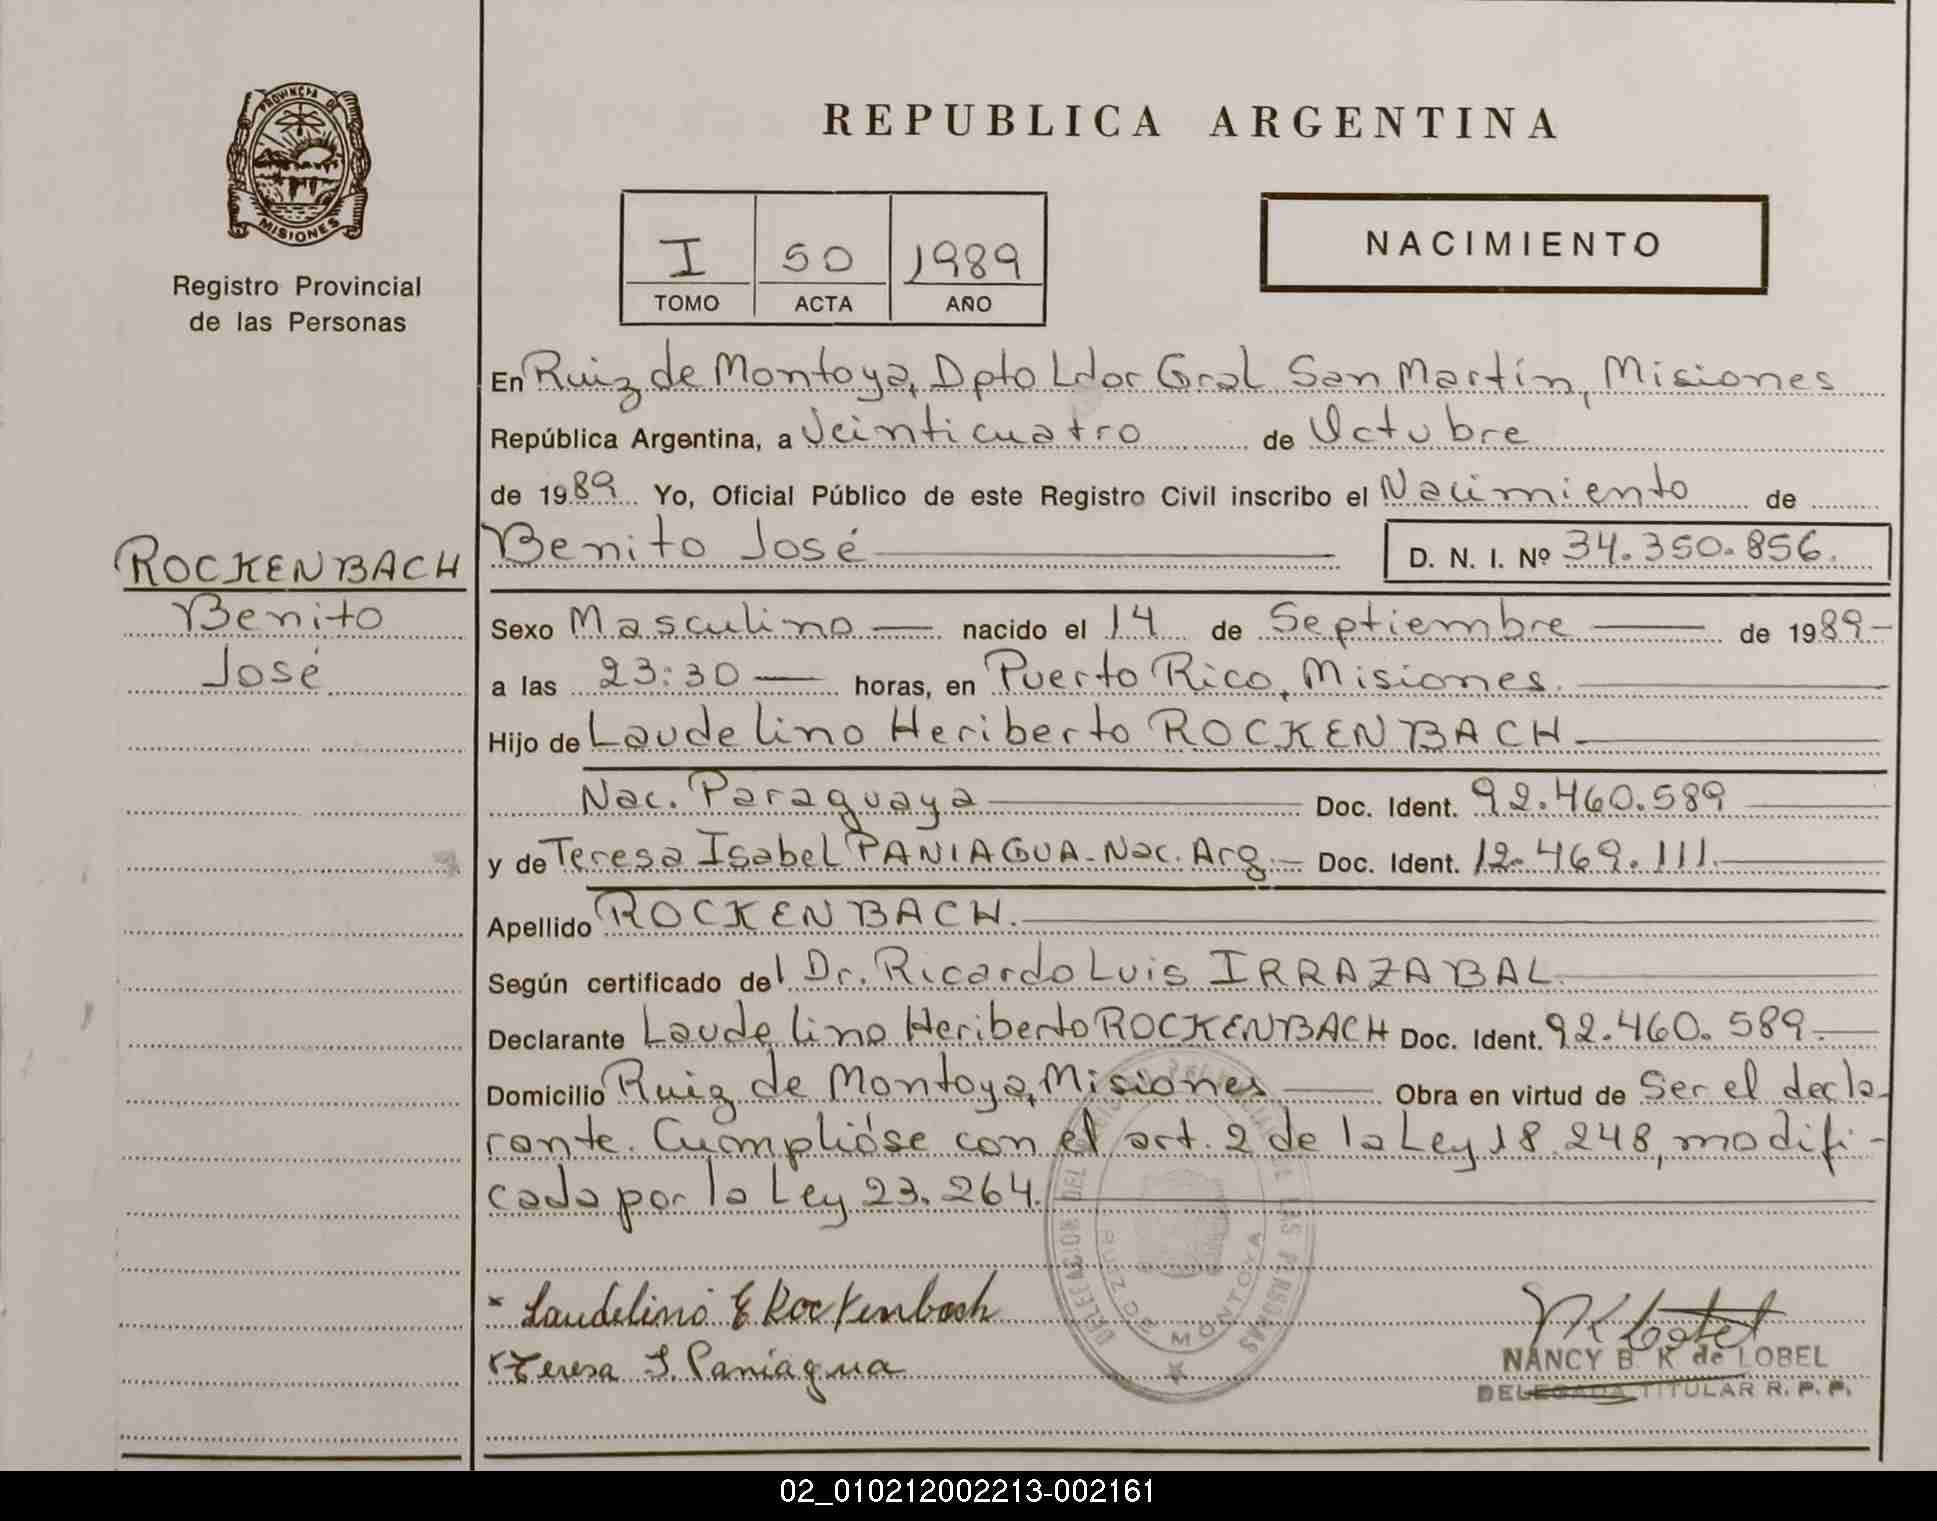 PROVINCIA DE
MISIONES
Registro Provincial
de las Personas
REPUBLICA ARGENTINA
I 50 1989
TOMO ACTA AÑO
NACIMIENTO
En Ruiz de Montoya, Dpto Ldor Gral San Martín, Misiones
República Argentina, a Veinticuatro de Octubre
de 1989 Yo, Oficial Público de este Registro Civil inscribo el Nacimiento de
Benito José D. N. I. Nº 34.350.856.
ROCKENBACH
Benito
José
Sexo Masculino nacido el 14 de Septiembre de 1989
a las 23:30 horas, en Puerto Rico, Misiones.
Hijo de Laudelino Heriberto ROCKENBACH
Nac. Paraguaya Doc. Ident. 92.460.589
y de Teresa Isabel PANIAGUA - Nac. Arg. Doc. Ident. 12.469.111.
Apellido ROCKENBACH.
Según certificado del Dr. Ricardo Luis IRRAZABAL
Declarante Laudelino Heriberto ROCKENBACH Doc. Ident. 92.460.589.
Domicilio Ruiz de Montoya, Misiones Obra en virtud de Ser el decla-
rante. Cumplióse con el art. 2 de la Ley 18.248, modifi-
cada por la Ley 23.264.
Laudelino E Rockenbach
Teresa I. Paniagua
DELEGACION DEL REGISTRO PROVINCIAL DE LAS PERSONAS
RUIZ DE MONTOYA
NANCY B. K. de LOBEL
DELEGADA TITULAR R. P. P.
02_010212002213-002161